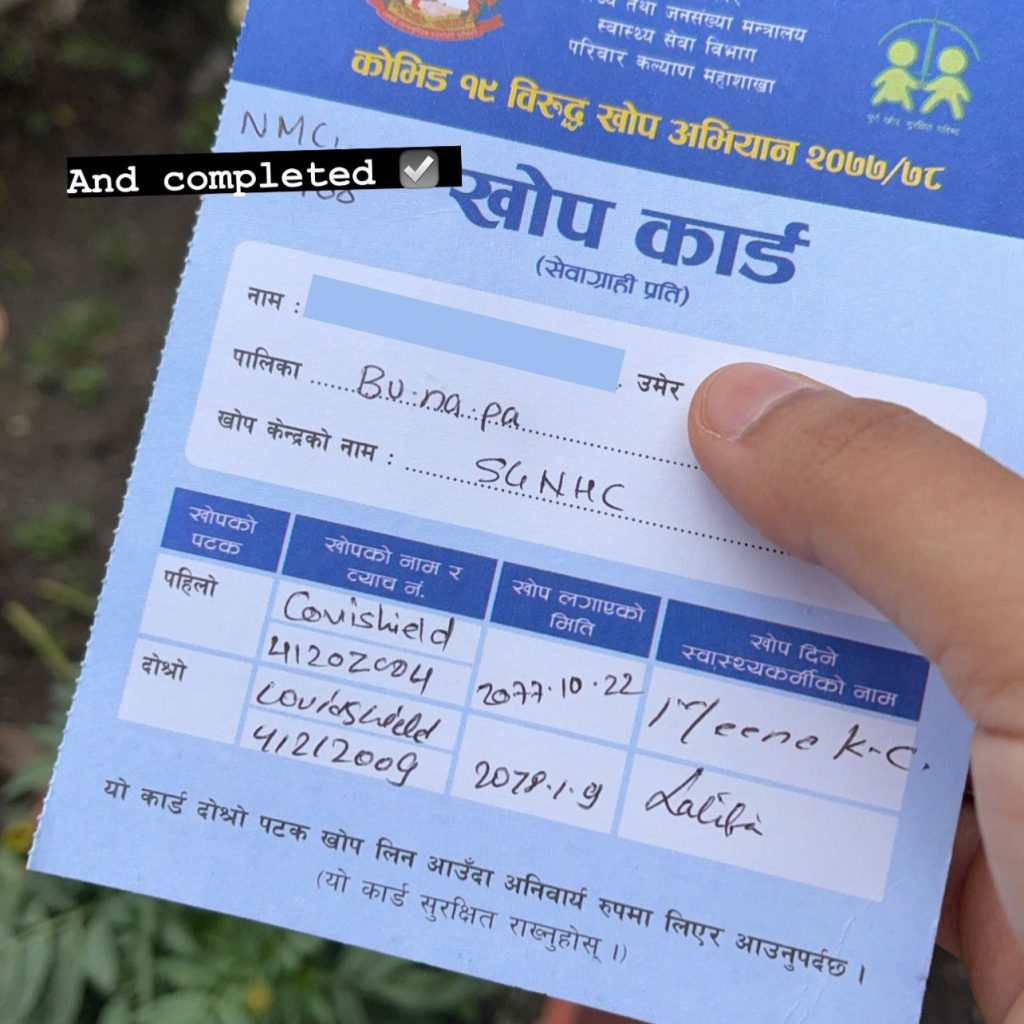 तथा जनसंख्या मन्त्रालय
स्वास्थ्य सेवा विभाग
परिवार कल्याण महाशाखा
पूर्ण खोप सुरक्षित भविष्य
कोभिड १९ विरुद्ध खोप अभियान २०७७/७८
NMC
And completed ✅
खोप कार्ड
(सेवाग्राही प्रति)
नाम : उमेर
पालिका ...... Bu.na.pa
खोप केन्द्रको नाम : ...... SGNHC
खोपको पटक खोपको नाम र ब्याच नं. खोप लगाएको मिति खोप दिने स्वास्थ्यकर्मीको नाम
पहिलो Covishield 4120Z004 2077.10.22 Meena K.C.
दोश्रो covidshield 4121Z009 2078.1.9
यो कार्ड दोश्रो पटक खोप लिन आउँदा अनिवार्य रुपमा लिएर आउनुपर्दछ ।
(यो कार्ड सुरक्षित राख्नुहोस् ।)